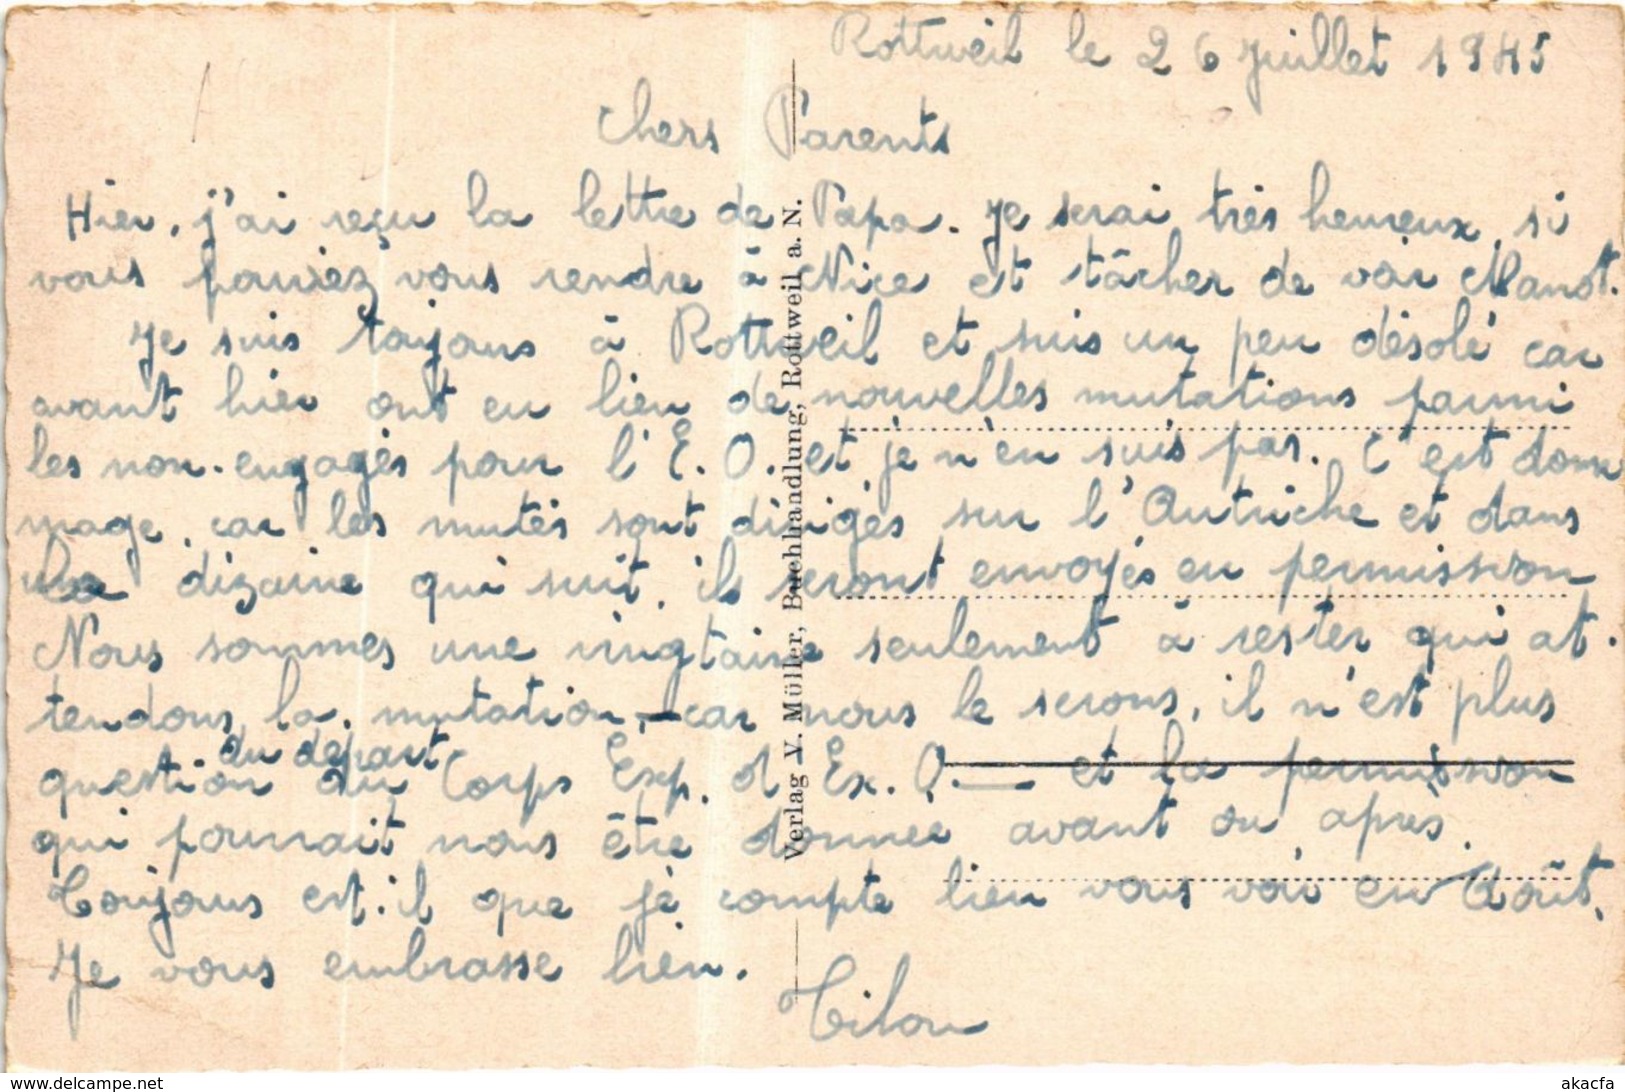 Rottweil le 26 Juillet 1945
Chers Parents
Hier, j'ai reçu la lettre de Papa. Je serai très heureux, si
vous pouviez vous rendre à Nice et tâcher de voir Manot.
Je suis toujours à Rottweil et suis un peu désolé car
avant hier ont eu lieu de nouvelles mutations parmi
les non-engagés pour l'E.O. et je n'en suis pas. C'est dom
mage, car les mutés sont dirigés sur l'Autriche et dans
la dizaine qui suit, ils seront envoyés en permission
Nous sommes une vingtaine seulement à rester qui at-
tendons la mutation, - car nous le serons, il n'est plus
du départ
question du Corps Exp. d'Ex. O. — et la permission
qui pourrait nous être donnée avant ou après.
Toujours est-il que je compte bien vous voir en Août.
Je vous embrasse bien.
Tilou
Verlag V. Möller, Buchhandlung, Rottweil a. N.
akacfa
www.delcampe.net